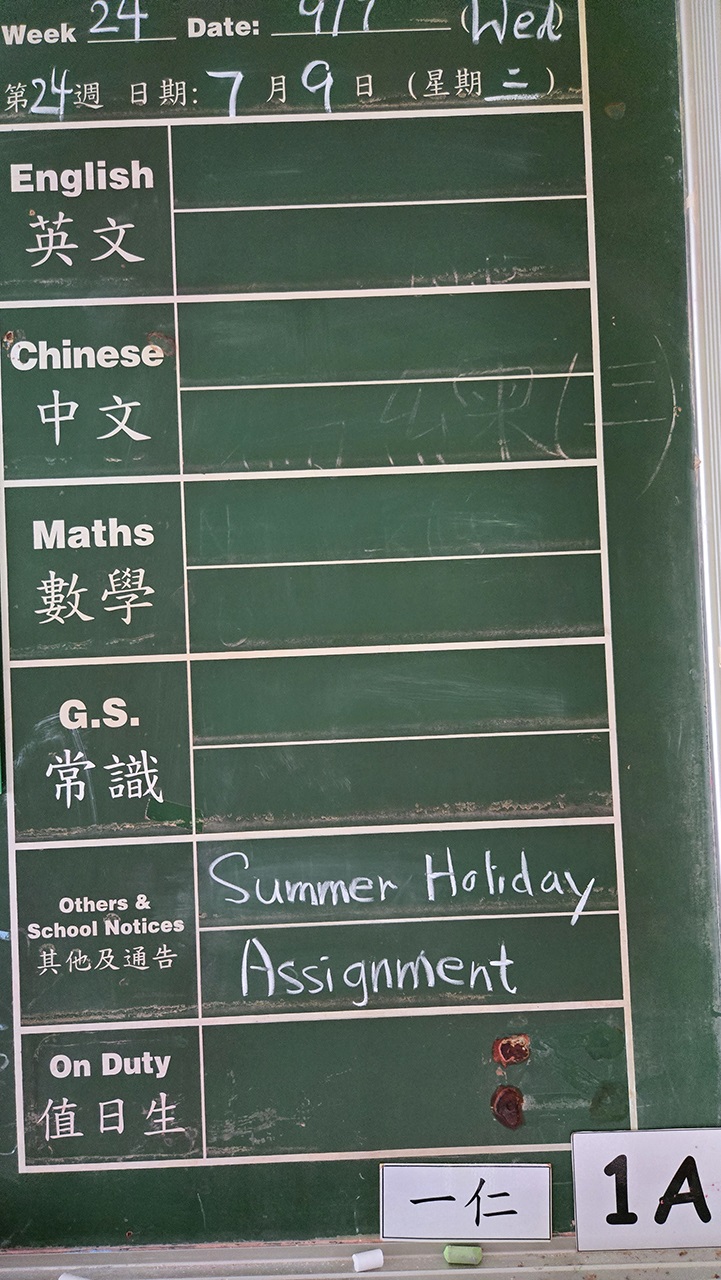 Week 24 Date: 9/7 (Wed)
第24週 日期: 7月9日 (星期二)
English
英文
Chinese
中文
Maths
數學
G.S.
常識
Others &
School Notices
其他及通告
Summer Holiday
Assignment
On Duty
值日生
一仁
1A